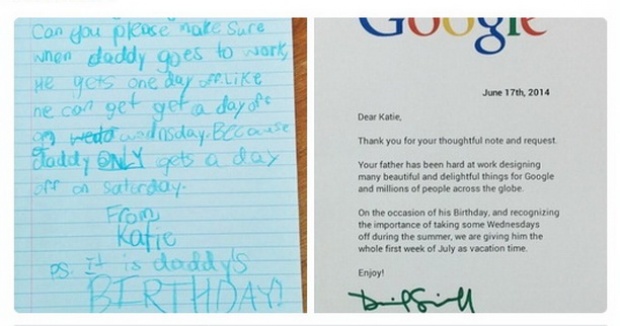 Can you please make sure
when daddy goes to work,
He gets one day off. Like
he can get get a day off
on wednsday. Because
daddy ONLY gets a day
off on saturday.
From,
Katie
P.S. It is daddy's
BIRTHDAY!
Google
June 17th, 2014
Dear Katie,
Thank you for your thoughtful note and request.
Your father has been hard at work designing
many beautiful and delightful things for Google
and millions of people across the globe.
On the occasion of his Birthday, and recognizing
the importance of taking some Wednesdays
off during the summer, we are giving him the
whole first week of July as vacation time.
Enjoy!